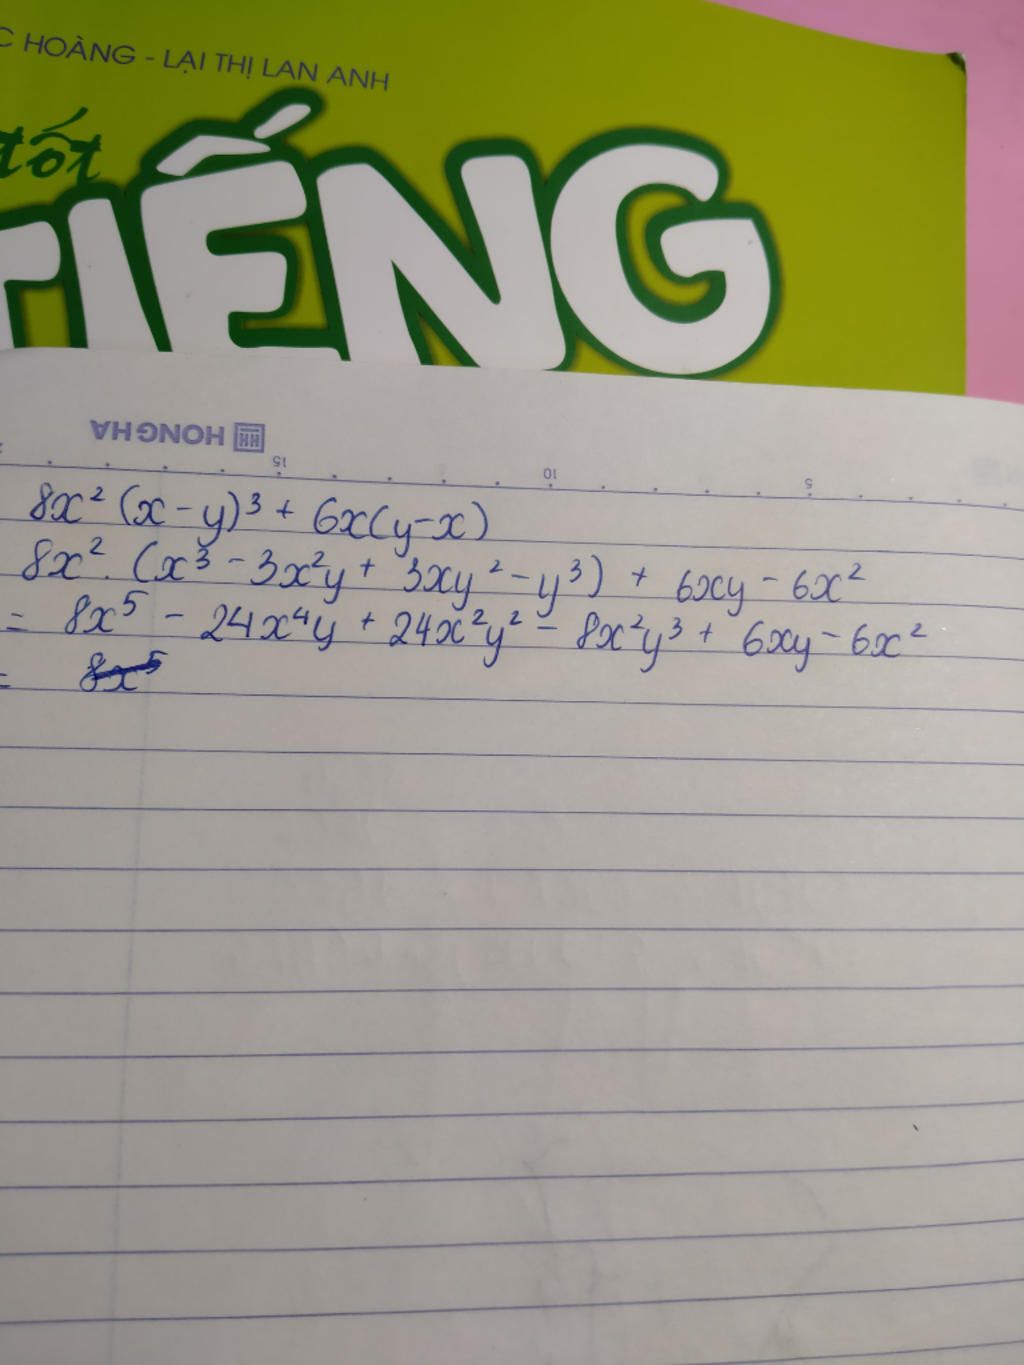 C HOÀNG - LẠI THỊ LAN ANH
tốt
TIẾNG
HONG HA
15 10 5
8x² (x - y)³ + 6x(y - x)
8x² . (x³ - 3x²y + 3xy² - y³) + 6xy - 6x²
= 8x⁵ - 24x⁴y + 24x²y² - 8x²y³ + 6xy - 6x²
= 8x⁵